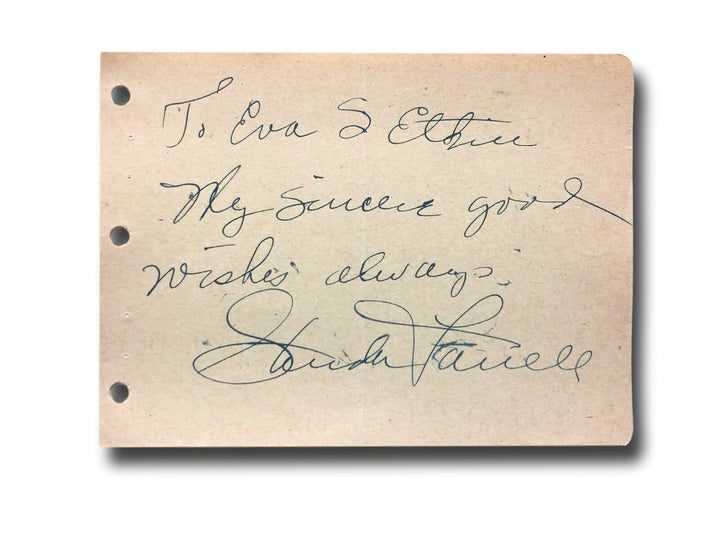 To Eva & Ethel
My sincere good
wishes always.
Glenda Farrell